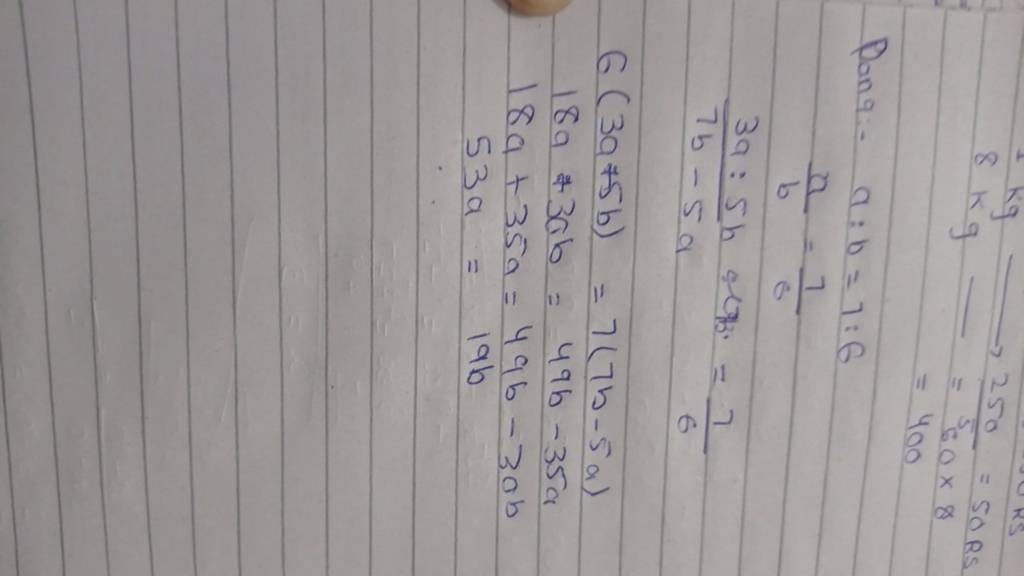 1 kg → 250/5 = 50 RS
8 kg — = 50 x 8
= 400
a : b = 7 : 6
a/b = 7/6
3a : 5b / 7b - 5a = 7/6
6 (3a + 5b) = 7 (7b - 5a)
18a + 30b = 49b - 35a
18a + 35a = 49b - 30b
53a = 19b